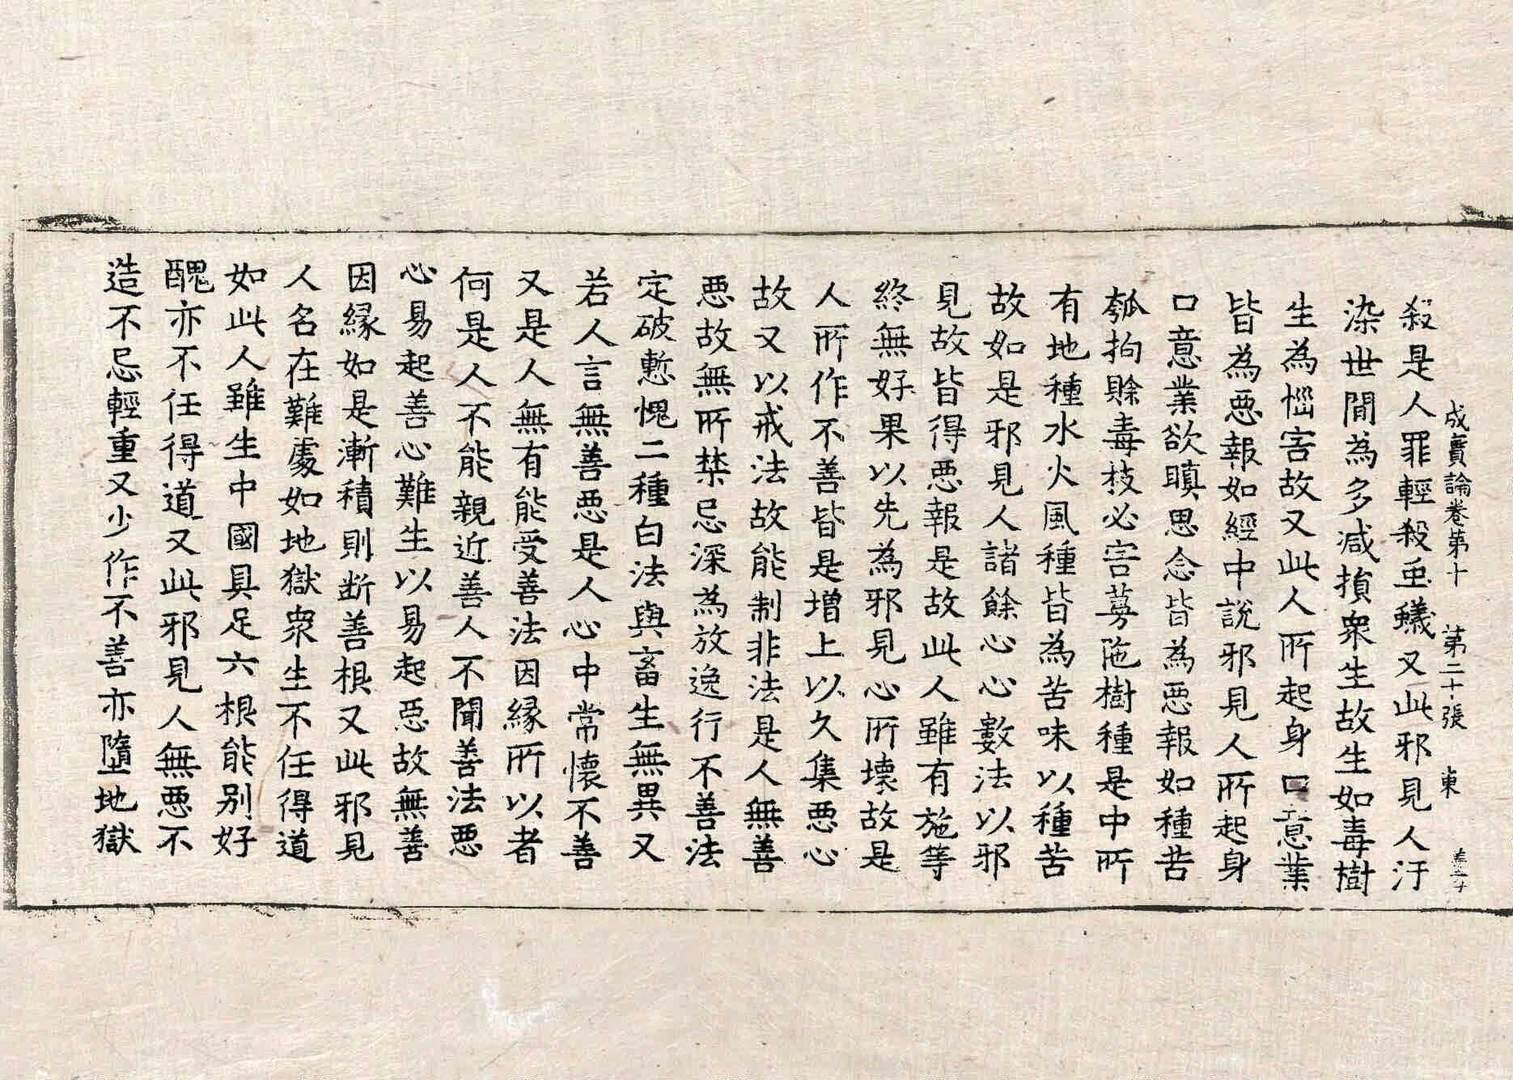 殺是人罪輕殺虫蟻又此邪見人汙
成實論卷第十　第二十張　東
染世間為多減損眾生故生如毒樹
生為惱害故又此人所起身口意業
皆為惡報如經中說邪見人所起身
口意業欲瞋思念皆為惡報如種苦
瓠拘賒毒枝必害蒡陁樹種是中所
有地種水火風種皆為苦味以種苦
故如是邪見人諸餘心心數法以邪
見故皆得惡報是故此人雖有施等
終無好果以先為邪見心所壞故是
人所作不善皆是增上以久集惡心
故又以戒法故能制非法是人無善
惡故無所禁忌深為放逸行不善法
定破慙愧二種白法與畜生無異又
若人言無善惡是人心中常懷不善
又是人無有能受善法因緣所以者
何是人不能親近善人不聞善法惡
心易起善心難生以易起惡故無善
因緣如是漸積則断善根又此邪見
人名在難處如地獄眾生不任得道
如此人雖生中國具足六根能別好
醜亦不任得道又此邪見人無惡不
造不忌輕重又少作不善亦墮地獄